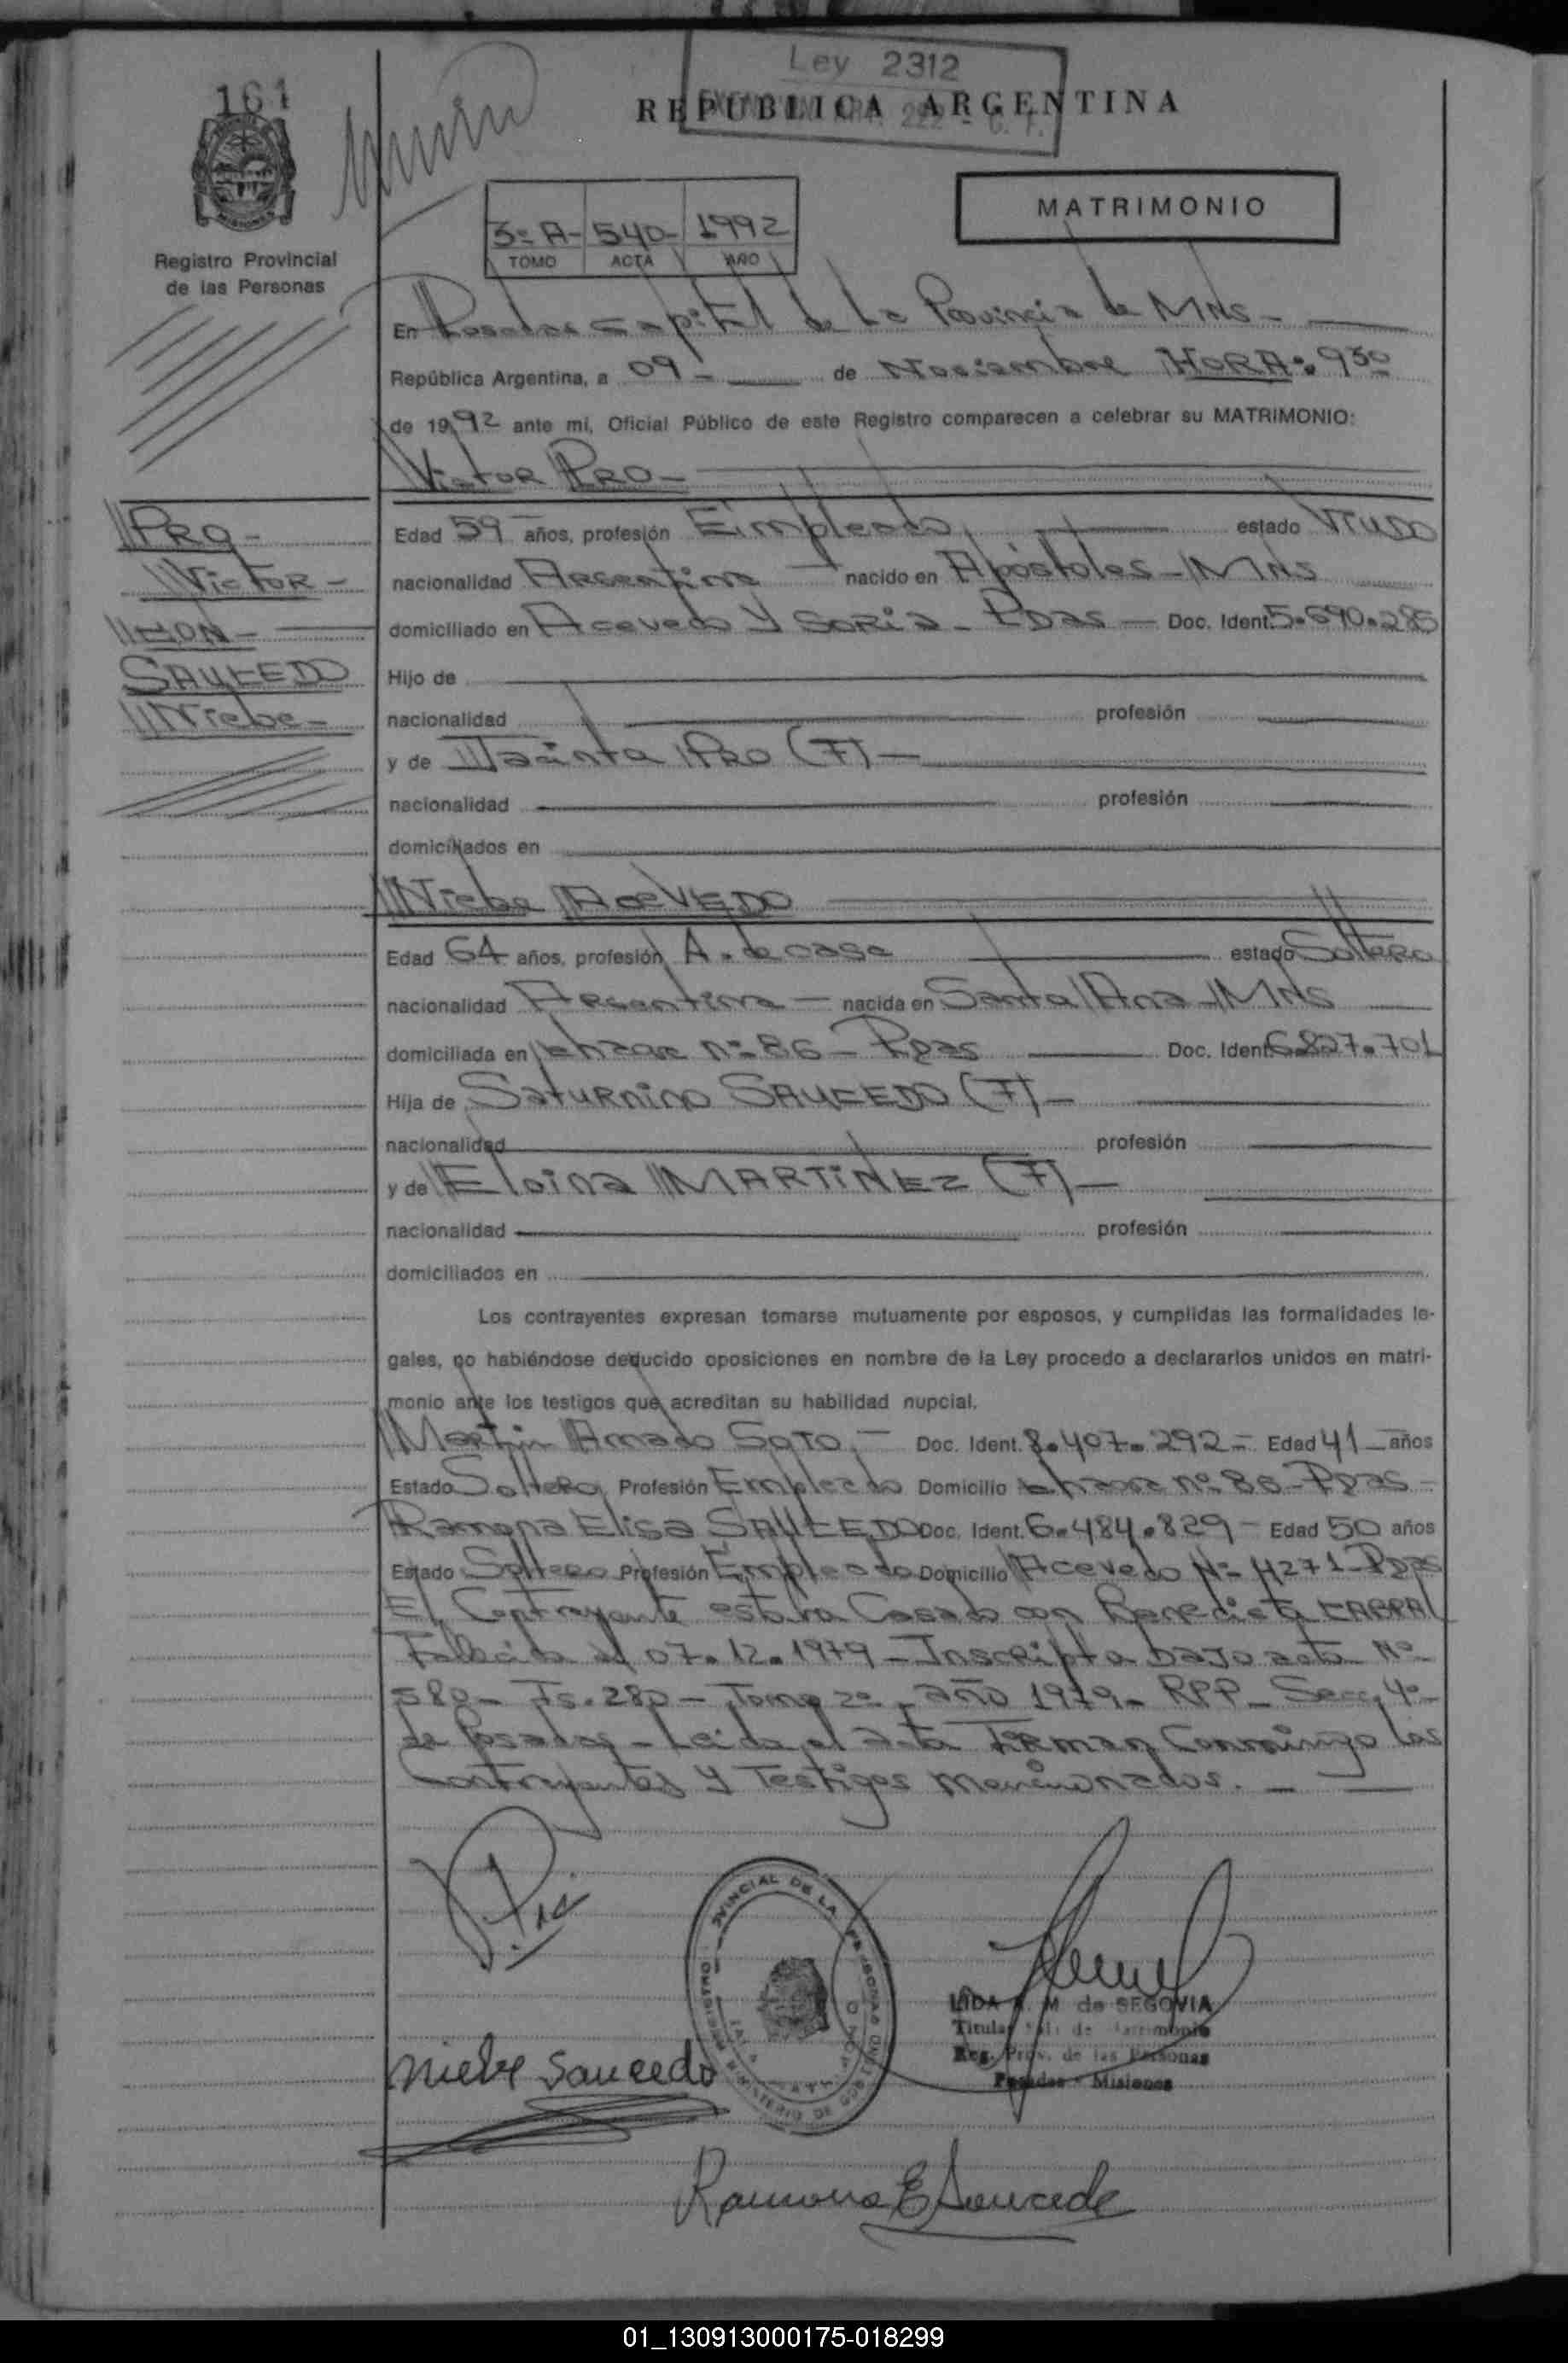 161
Ley 2312
REPUBLICA ARGENTINA
MATRIMONIO
3º A- 540- 1992
TOMO ACTA AÑO
Registro Provincial
de las Personas
En Posadas Capital de La Provincia de MNS-
República Argentina, a 09- de Noviembre HORA: 9 30
de 1992 ante mi, Oficial Público de este Registro comparecen a celebrar su MATRIMONIO:
Victor PRO-
PRO-
Victor-
CON-
SAUCEDO
Niebe-
Edad 59 años, profesión Empleado estado Viudo
nacionalidad Argentina nacido en Apóstoles-MNS
domiciliado en Acevedo y Soria- Pdas- Doc. Ident. 5.690.285
Hijo de
nacionalidad profesión
y de Jacinta PRO (F)-
nacionalidad profesión
domiciliados en
Niebe AceVEDO
Edad 64 años, profesión A. de casa estado Soltera
nacionalidad Argentina- nacida en Santa Ana-MNS
domiciliada en chacra nº 86- Pdas Doc. Ident. 6.827.701
Hija de Saturnino SAUCEDO (F)-
nacionalidad profesión
y de Eloina MARTINEZ (F)-
nacionalidad profesión
domiciliados en
Los contrayentes expresan tomarse mutuamente por esposos, y cumplidas las formalidades le-
gales, no habiéndose deducido oposiciones en nombre de la Ley procedo a declararlos unidos en matri-
monio ante los testigos que acreditan su habilidad nupcial.
Martin Amado Soto- Doc. Ident. 8.407.292- Edad 41 años
Estado Soltero Profesión Empleado Domicilio chacra nº 86-Pdas-
Ramona Elisa SAUCEDO Doc. Ident. 6.484.829- Edad 50 años
Estado Soltera Profesión Empleada Domicilio Acevedo Nº 4271-Pdas
El Contrayente estaba Casado con Benedicta CABRAL
Fallecida el 07.12.1979- Inscripta bajo acta Nº
580- Fs. 280- Tomo 2º- año 1979- RPP- Secc. 4º-
de Posadas- Leida el acta Firman Conmingo los
Contrayentes y Testigos mencionados.-
LIDA M de SEGOVIA
Titular de Matrimonio
Reg. Prov. de las Personas
Posadas - Misiones
Niebe Saucedo
Ramona E Saucedo
01_130913000175-018299